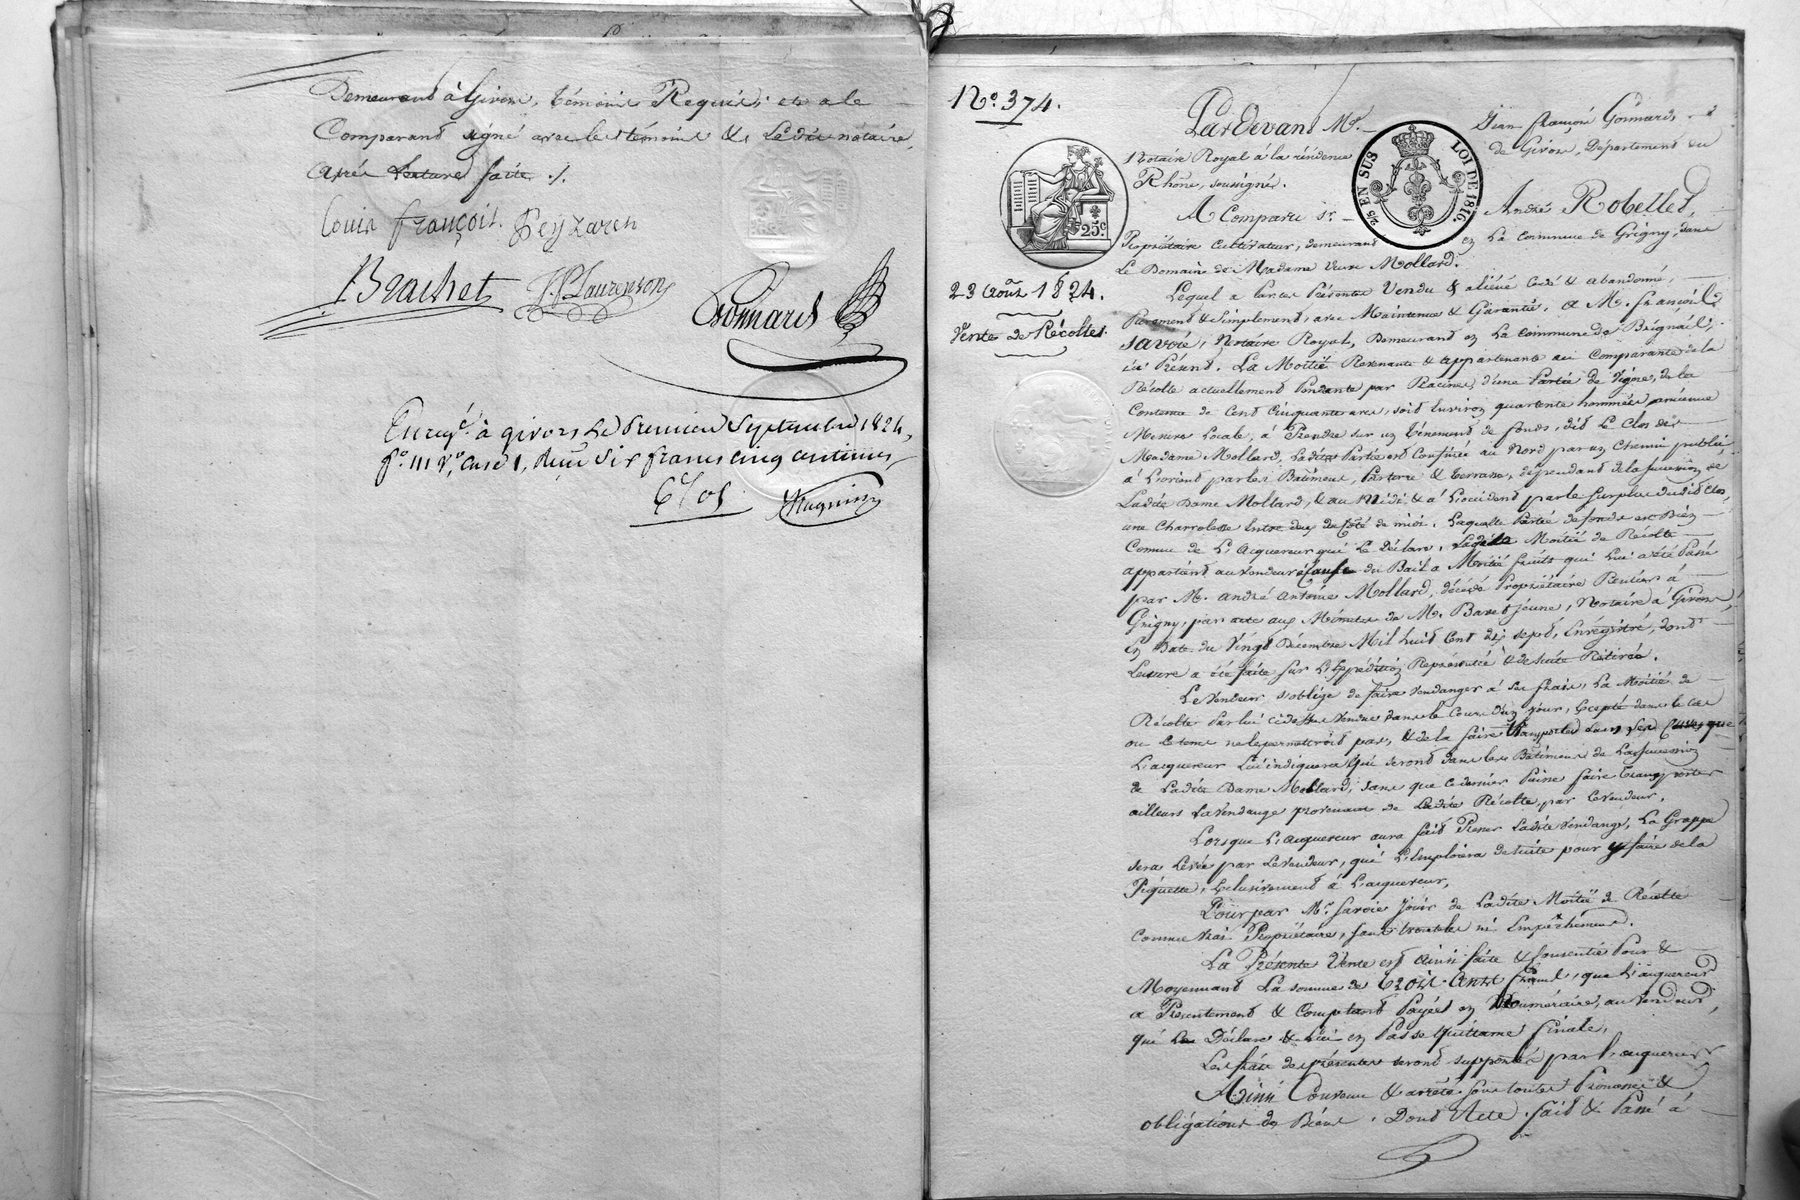 Demeurant à Givors, témoins Requis; et a le
Comparant signé avec les témoins & le dit notaire,
après Lecture faite ./.
Louis françois Peyzaren
Brachet JPLaurenson
Gonnard
Enreg.é à givors le Premier Septembre 1824,
f.o 111 v.o case 1, Reçu six francs cinq centimes
6f 05
N.o 374.
25.c
2/5 EN SUS LOI DE 1816.
23 Août 1824.
Vente de Récoltes.
Pardevant M.e Jean françois Gonnard,
Notaire Royal à la résidence de Givors, Département du
Rhône, soussigné.
A Comparu s.r André Robellet,
Propriétaire Cultivateur, demeurant en La Commune de Grigny, dans
Le Domaine de Madame Veuve Mollard.
Lequel a par ces Présentes Vendu & aliéné Cédé & abandonné,
Purement & Simplement, avec Maintenue & Garantie, A M.r françois
Savoie, Notaire Royal, Demeurant en La Commune de Brignais,
ici Présent, La Moitié Revenante & appartenante au Comparant de la
Récolte actuellement Pendante par Racines, d'une Partie de Vignes, de la
Contenue de Cent Cinquante ares, soit Environ quarante hommées ancienne
Mesure Locale, à Prendre sur un Ténement de fonds, dit Le Clos de
Madame Mollard, Ladite Partie est Confinée au Nord par un Chemin public,
à L'orient par les Bâtiments, Parterre & terrasse, dépendant de la succession de
Ladite Dame Mollard, & au Midi & à L'occident par le surplus dudit Clos,
une Charrolette Entre deux du Côté de midi. Laquelle Partie de fonds est Bien
Connue de L'acquéreur qui Le Déclare. Ladite Moitié de Récolte
appartient au vendeur à Cause du Bail à Moitié fruits qui Lui a été Passé
par M. André Antoine Mollard, décédé Propriétaire Rentier à
Grigny, par acte aux Minutes de M.e Baret jeune, Notaire à Givors,
En Date du Vingt Décembre Mil huit Cent dix sept, Enrégistré, dont
Lecture a été faite sur L'Expédition Représentée & de suite Retirée.
Le Vendeur s'oblige de faire vendanger à ses frais, La Moitié de
Récolte Par lui ci dessus Vendue dans le Cours d'un jour, Excepté dans le cas
ou Le tems ne le permettroit pas, & de la faire transporter dans les Cuves que
L'acquéreur Lui indiquera qui seront dans les Bâtiments de La succession
de Ladite Dame Mollard, sans que ce dernier Puisse faire transporter
ailleurs La vendange provenant de Ladite Récolte, par Le vendeur.
Lorsque L'acquéreur aura fait Presser Ladite vendange, La Grappe
sera Levée par Le vendeur, qui L'Emploiera de suite pour y faire de la
Piquette, Exclusivement à L'acquéreur,
Pour par M.r Savoie Jouir de Ladite Moitié de Récolte
Comme Vrai Propriétaire, sans trouble ni Empêchement.
La Présente Vente est Ainsi faite & Consentie Pour &
Moyennant La somme de trois Cents francs, que L'acquéreur
a Présentement & Comptant Payés en Numéraire, au Vendeur,
qui Le Déclare & Lui en Passe Quittance finale,
Les frais des présentes seront supportés par L'acquéreur
Ainsi Convenu & arrêté sous toutes Promesses &
obligations de Biens. Dont Acte. fait & Passé à